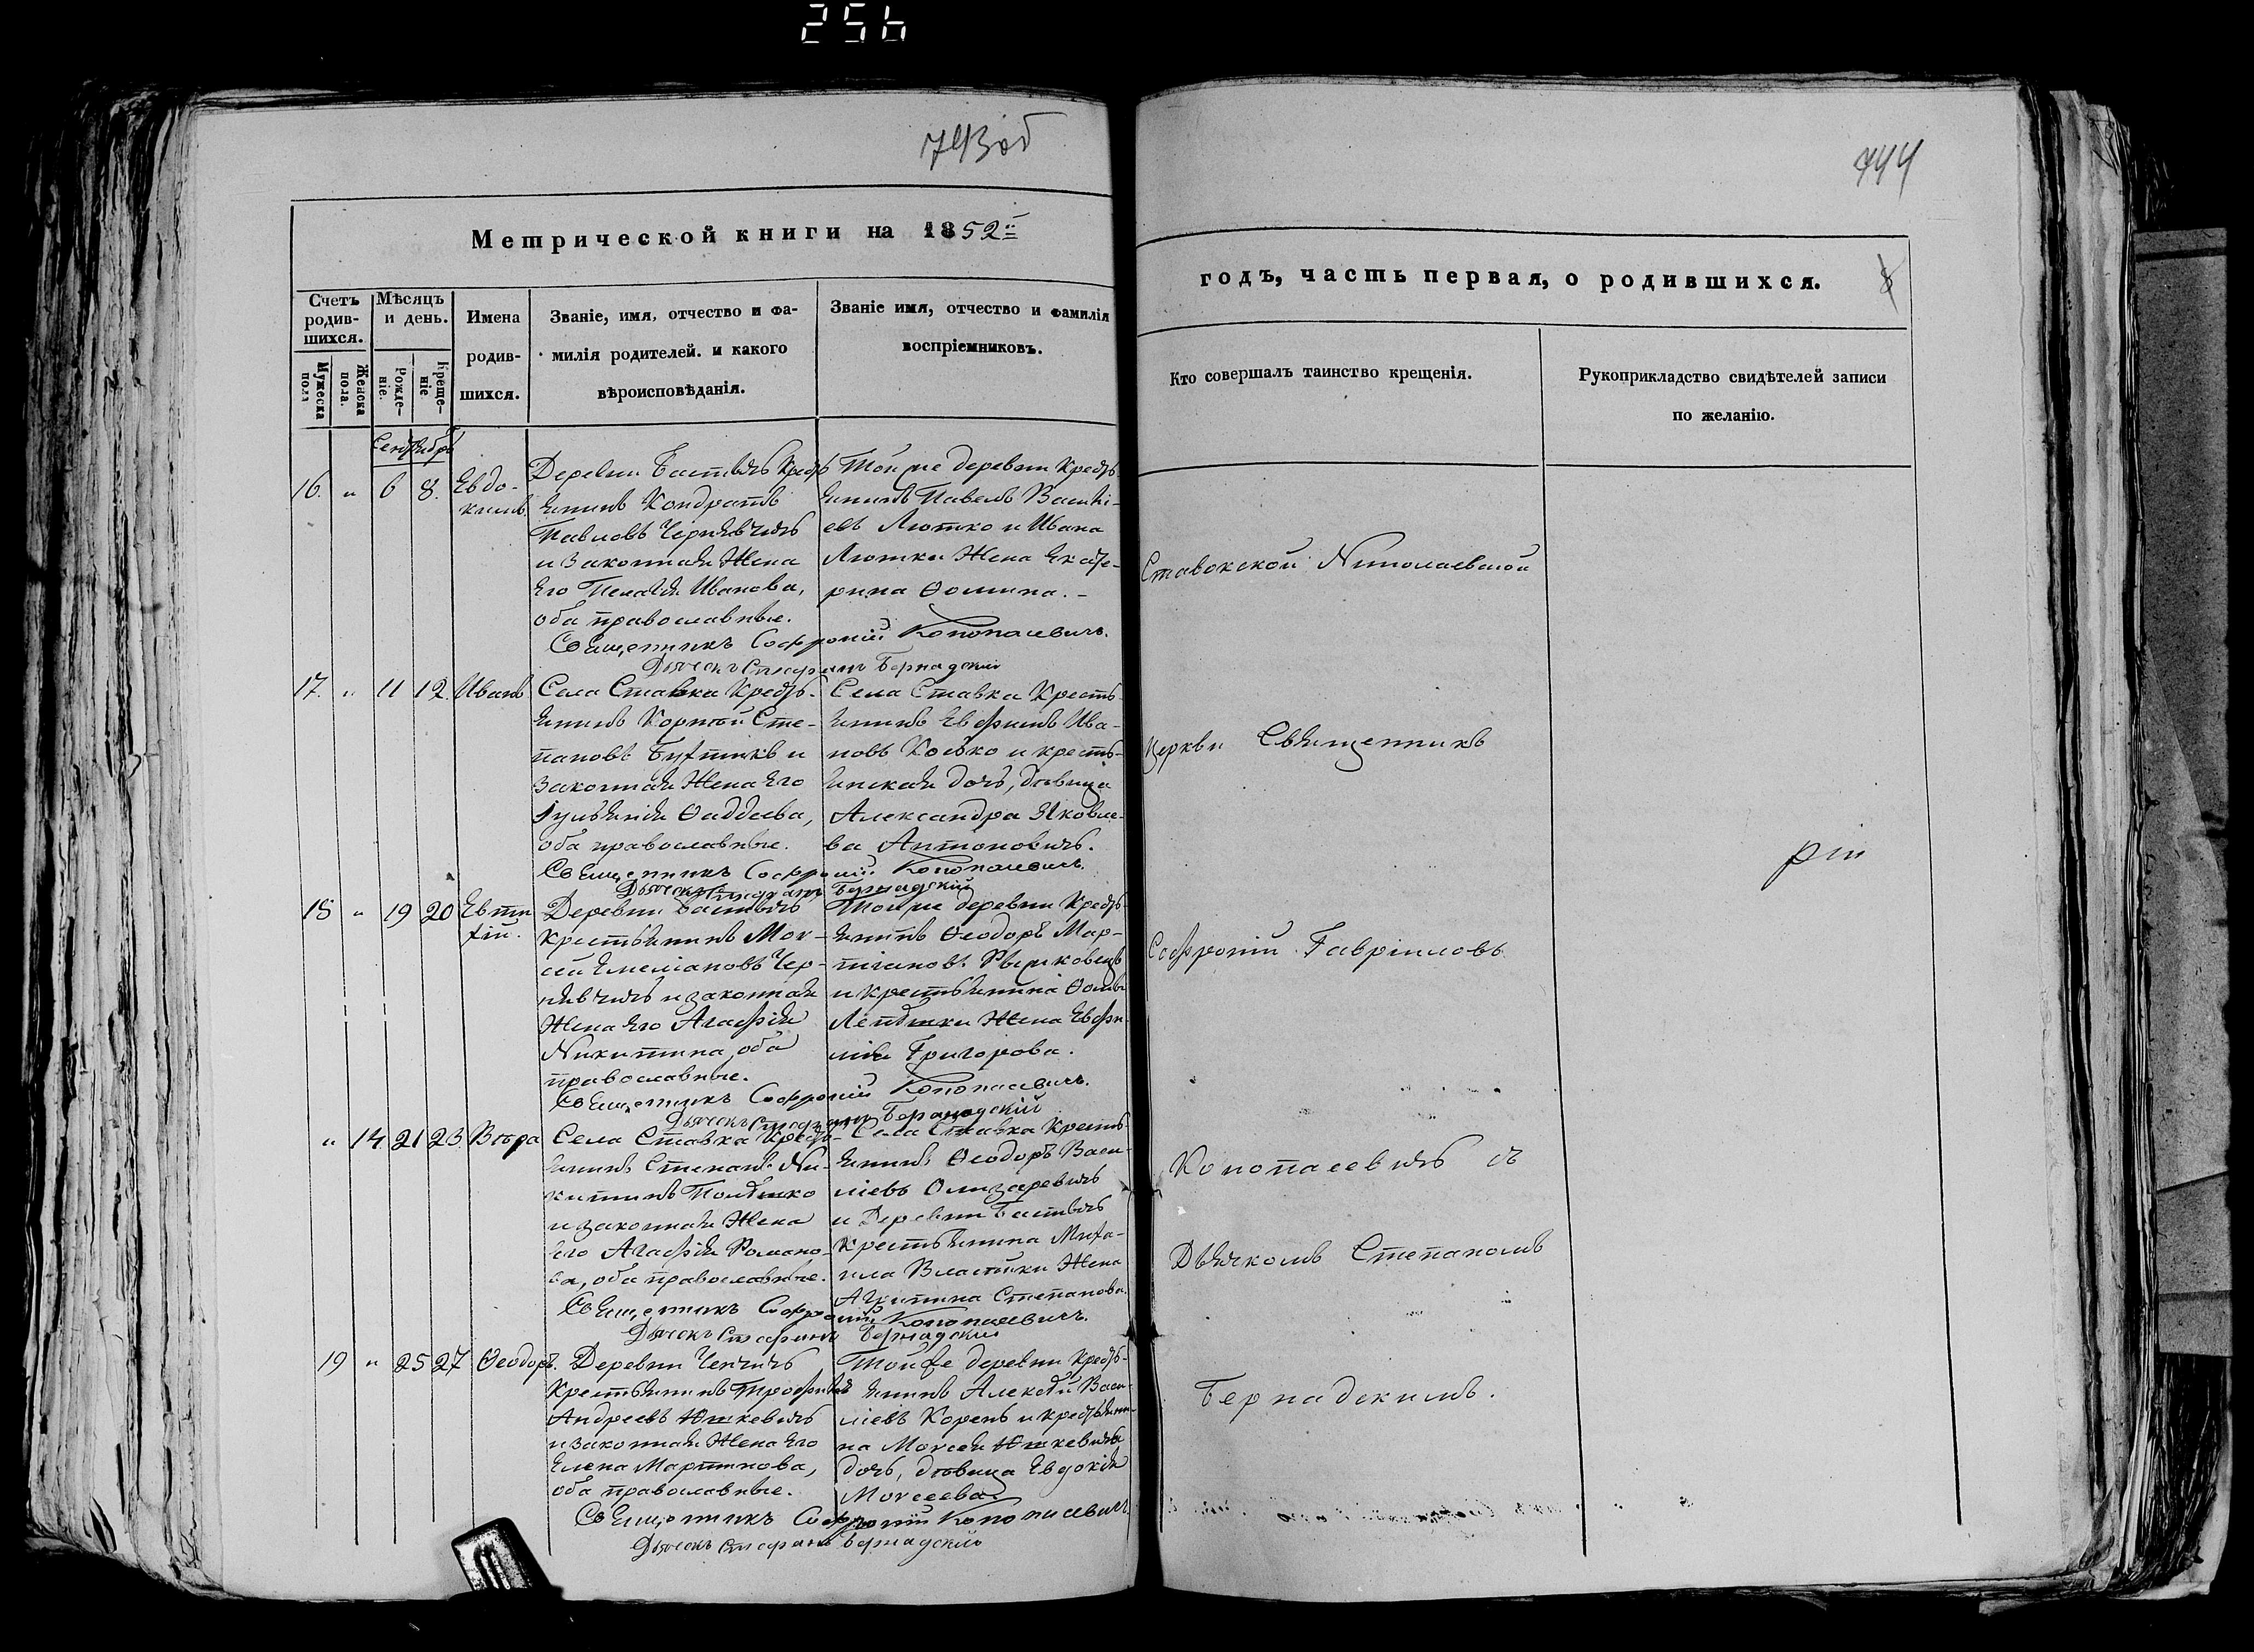 256
743об
744
Метрической книги на 1852й
годъ, часть первая, о родившихся.
8
Счетъ родив-шихся.
Мужеска пола
Женска пола.
Мѣсяцъ и день.
Рожде-ніе.
Креще-ніе
Имена
родив-
шихся.
Званіе, имя, отчество и фа-
милія родителей. и какого
вѣроисповѣданія.
Званіе имя, отчество и фамилія
воспріемниковъ.
Кто совершалъ таинство крещенія.
Рукоприкладство свидѣтелей записи
по желанію.
Сентябрь
16. „ 6 8. Евдо-
кимъ
Деревни Бастычъ Кресть
янинъ Кондратъ
Павловъ Чернявчичъ
и законная жена
его Пелагія Иванова,
оба православные.
Той же деревни Кресть
янинъ Павелъ Васи-
евъ Лютко и Ивана
Лютки жена Екате-
рина Ѳомина. -
Священникъ Софроній Конопасевичъ.
Дьячекъ Стефанъ Бернадский
17. „ 11 12. Иванъ
Села Ставка Кресть-
янинъ Корнтой Сте-
пановъ и
законная жена его
Іуліянія Ѳаддеева,
оба православные.
Села Ставка Кресть-
янинъ Евфимъ Ива-
новъ и кресть-
янская дочь, дѣвица
Александра Яковле-
ва Антоновичъ.
Священникъ Софроній Конопасевичъ.
Дьячекъ Стефанъ Бернадскій
18 „ 19 20 Евти
хій.
Деревни Бастычъ
крестьянинъ Мои-
сей Емеліановъ Чер-
нявчичъ и законная
жена его Агафія
Никитина, оба
православные.
Той же деревни Кресть-
янинъ Ѳеодоръ Мар-
тіановъ Рышковецъ
и крестьянина Ѳомы
жена Евфи-
мія Григорова.
Священникъ Софроній Конопасевичъ.
Дьячекъ Стефанъ Бернадскій
„ 14. 21 23. Вѣра
Села Ставка Кресть-
янинъ Степанъ Ни-
китинъ
и законная жена
его Агафія Романо-
ва, оба православные.
Села Ставка Кресть-
янинъ Ѳеодоръ Васи-
ліевъ Олизаревичъ
и Деревни Бастычъ
Крестьянина Миха-
ила жена
Агрипина Степанова.
Священникъ Софроній Конопасевичъ.
Дьячекъ Стефанъ Бернадский
19 „ 25 27 Ѳеодоръ.
Деревни
Крестьянинъ Трофимъ
Андреевъ Юшкевичъ
и законная жена его
Елена Мартинова,
оба православные.
Той же деревни Кресть-
янинъ Алексѣй Васи-
ліевъ Корень и крестьяни-
на Моисея Юшкевича
дочь, дѣвица Евдокія
Моисеева.
Священникъ Софроній Конопасевичъ
Дьячекъ Стефанъ Бернадский
Ставокской Николаевской
церкви Священникъ
Софроній Гавріиловъ
Конопасевичъ съ
Дьячкомъ Степаномъ
Бернадскимъ.
рій